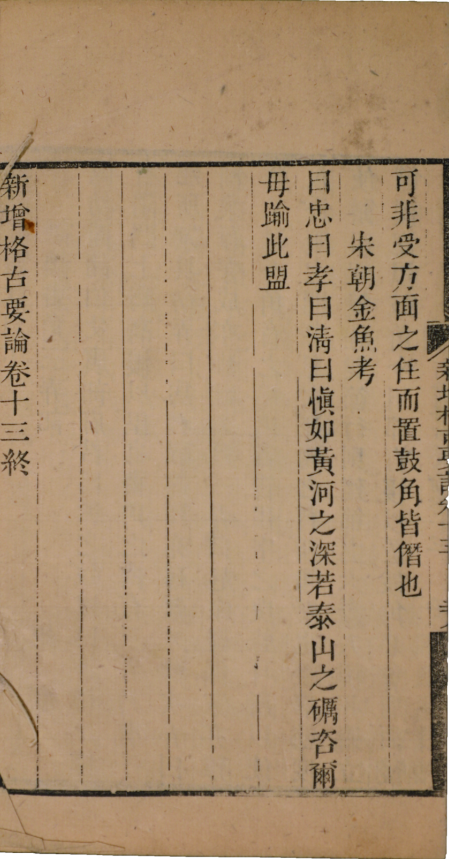 可非受方面之任而置鼓角皆僭也
宋朝金魚考
曰忠曰孝曰淸曰愼如黃河之深若泰山之礪咨爾
毋踰此盟
新增格古要論卷十三終